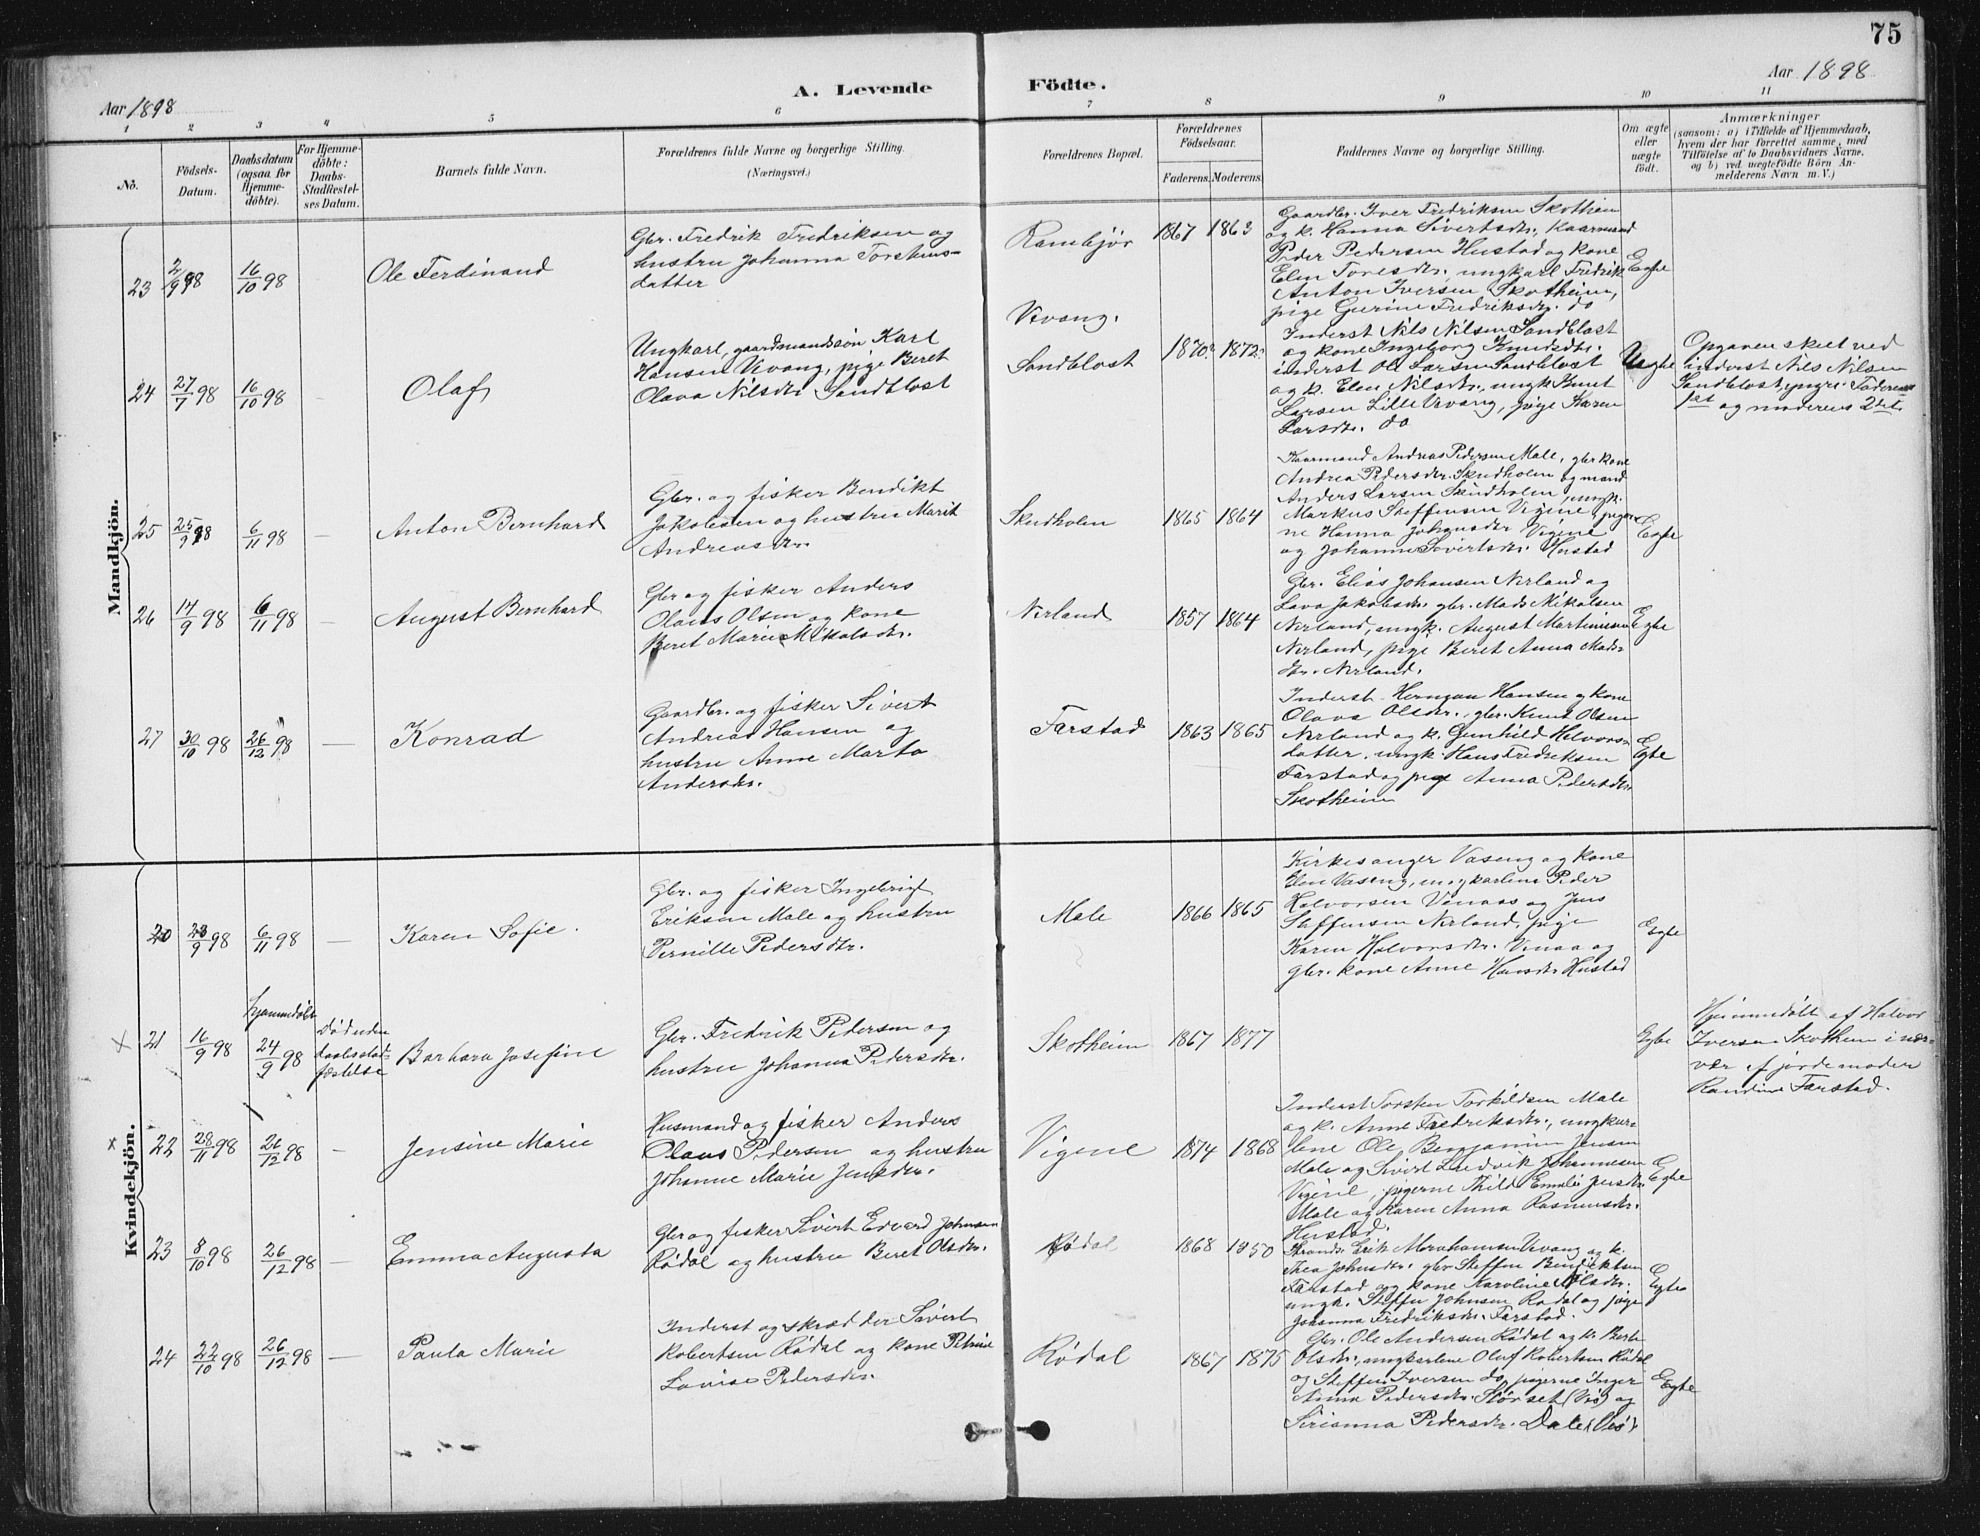 75
Aar 1898
A. Levende
Födte.
Aar 1898
1 2 3 4 5 6 7 8 9 10 11
No.
Födsels-
Datum.
Daabsdatum
(ogsaa for
Hjemme-
döbte).
For Hjemme-
döbte:
Daabs-
Stadfæstel-
ses Datum.
Barnets fulde Navn.
Forældrenes fulde Navne og borgerlige Stilling.
(Næringsvei.)
Forældrenes Bopæl.
Forældrenes
Födselsaar.
Faderens. Moderens.
Faddernes Navne og borgerlige Stilling.
Om ægte
eller
uægte
födt.
Anmærkninger
(saasom: a) i Tilfælde af Hjemmedaab,
hvem der har forrettet samme, med
Tilföielse af to Daabsvidners Navne,
og b) ved uægtefödte Börn An-
melderens Navn m. V.)
Mandkjön.
23 2/9 98 16/10 98 — Ole Ferdinand
Gbr. Fredrik Fredriksen og
hustru Johanna Torstens-
datter
Rambjør 1867 1863
Gaardbr. Iver Fredriksen Skotheim
og k. Hanna Sivertsdr., Kaarmand
Peder Pedersen Hustad og kone
Elen Toresdr. ungkarl Fredrik
Anton Iversen Skotheim,
pige Gurine Fredriksdr. do
Egte
24 27/7 98 16/10 98 Olaf
Ungkarl, gaardmandssøn Karl
Hansen Vevang, pige Beret
Olava Nilsdr. Sandblost
Vevang.
Sandblost 1870? 1872?
Inderst Nils Nilsen Sandblost
og kone Ingeborg Knudsdr.
inderst Ole Larsen Sandblost
og k. Elen Nilsdr., ungk. Knut
Larsen Lille Vevang, pige Karen
Larsdr. do
Uegte
Opgaven skeet ved
inderst Nils Nilsen
Sandblost, yngre. Faderens
1st og moderens 2det.
25 25/9 98 6/11 98 — Anton Bernhard
Gbr. og fisker Bendikt
Jakobsen og hustru Marit
Andreasdr.
Skudholm 1865 1864
Kaarmand Andreas Pedersen Male, gbr kone
Andrea Pedersdr. Skudholm og mand
Anders Larsen Skudholm, ungk.
Markus Steffensen Vigene, piger-
ne Hanna Johansdr Vigene
og Johanne Sivertsdr. Hustad
Egte
26 14/9 98 6/11 98 — August Bernhard
Gbr og fisker Anders
Olaus Olsen og kone
Beret Marie Mikalsdr.
Nerland 1857 1864
Gbr. Elias Johansen Nerland og
Lava Jakobsdr. gbr. Mads Nikolsen
Nerland, ungk. August Martinusen
Nerland, pige Beret Anna Mads-
dr. Nerland.
Egte
27 30/10 98 26/12 98 — Konrad
Gaardbr. og fisker Sivert
Andreas Hansen og
hustru Anne Marta
Andersdr.
Farstad 1863 1865
Inderst Herman Hansen og kone
Olava Olsdr., gbr. Knut Olsen
Nerland og k. Gunhild Halvors-
datter, ungk. Hans Fredriksen
Farstad og pige Anna Pedersdr.
Skotheim
Egte
Kvindekjön.
20 23/9 98 6/11 98 — Karen Sofie.
Gbr. og fisker Ingebrigt
Eriksen Male og hustru
Pernille Pedersdr.
Male 1866 1865
Kirkesanger Vaseng og kone
Elen Vaseng, ungkarlene Peder
Halvorsen Venaas og Jens
Steffensen Nerland, pige
Karen Halvorsdr. Venaa og
gbr. kone Anne Hansdr Hustad
Egte
× 21 16/9 98
hjemmedøbt
24/9 98
Død uden
daabsstad-
fæstelse
Barbara Josefine
Gbr. Fredrik Pedersen og
hustru Johanna Pedersdr.
Skotheim 1867 1877
Egte
Hjemmedøbt af Halvor
Iversen Skotheim i nær-
vær af jordemoder
Randine Farstad.
× 22 28/11 98 26/12 98 — Jensine Marie
Husmand og fisker Anders
Olaus Pedersen og hustru
Johanne Marie Jensdr.
Vigene 1874 1868
Inderst Torsten Torkildsen Male
og k. Anne Fredriksdr., ungkar-
lene Ole Benjamin Jensen
Male og Sivert Ludvik Johannesen
Vigene, pigerne Thilde Emelie Jensdr.
Male og Karen Anna Rasmusdr.
Hustad.
Egte
23 8/10 98 26/12 98 — Emma Augusta
Gbr og fisker Sivert Edvard Johnsen
Rødal og hustru Beret Olsdr.
Rødal 1868 1850
Strands. Erik Abrahamsen Vevang og k.
Thea Johnsdr. gbr Steffen Bendiktsen
Farstad og kone Karoline Nilsdr.
ungk. Steffen Johnsen Rødal og pige
Johanna Fredriksdr. Farstad.
Egte
24 22/10 98 26/12 98 — Paula Marie
Inderst og skrædder Sivert
Robertsen Rødal og kone Petrine
Lovise Pedersdr.
Rødal 1867 1875
Gbr. Ole Andersen Rødal og k. Berte
Olsdr., ungkarlene Oluf Robertsen Rødal
og Steffen Iversen do, pigerne Inger
Anna Pedersdr. Storset (Vos) og
Sirianna Pedersdr. Dale (Vos)
Egte